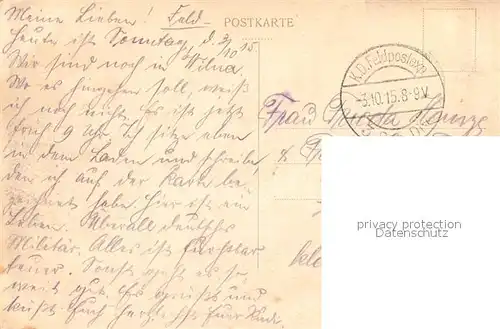 Meine Lieben! Feld-
POSTKARTE
Heute ist Sonntag, d. 3/10 15.
Wir sind noch in Wilna.
Wo es hingehen soll, weiß
ich noch nicht. Es ist jetzt
früh 9 Uhr. Ich sitze eben
in dem Laden und schreibe,
den ich auf der Karte be-
zeichnet habe. Hier ist ein
Leben. Überall deutsches
Militär. Alles ist furchtbar
teuer. Sonst geht es so
weit gut. Es grüßt und
küßt Euch herzlichst Euer
K.D. Feldpostexp.
-3.10.15.8-9V.
Frau
privacy protection
Datenschutz